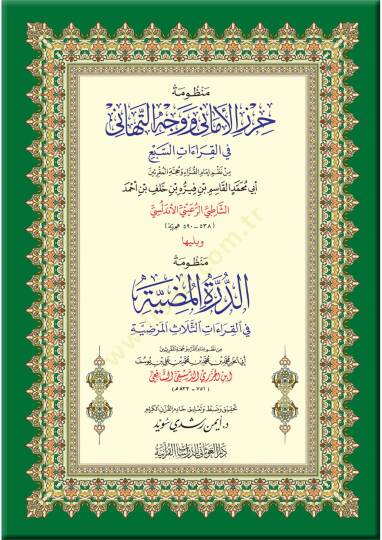 منظومة
حرز الأماني ووجه التهاني
في القراءات السبع
من نظم إمام القراء وحجة المقرئين
أبي محمد القاسم بن فيره بن خلف بن أحمد
الشاطبي الرعيني الأندلسي
(٥٣٨ - ٥٩٠ هجرية)
ويليها
منظومة
الدرة المضية
في القراءات الثلاث المرضية
أبي الخير محمد بن محمد بن محمد بن علي بن يوسف
ابن الجزري الدمشقي الشافعي
(٧٥١ - ٨٣٣ هـ)
تحقيق وضبط وتعليق خادم القرآن الكريم
د. أيمن رشدي سويد
دار الغوثاني للدراسات القرآنية